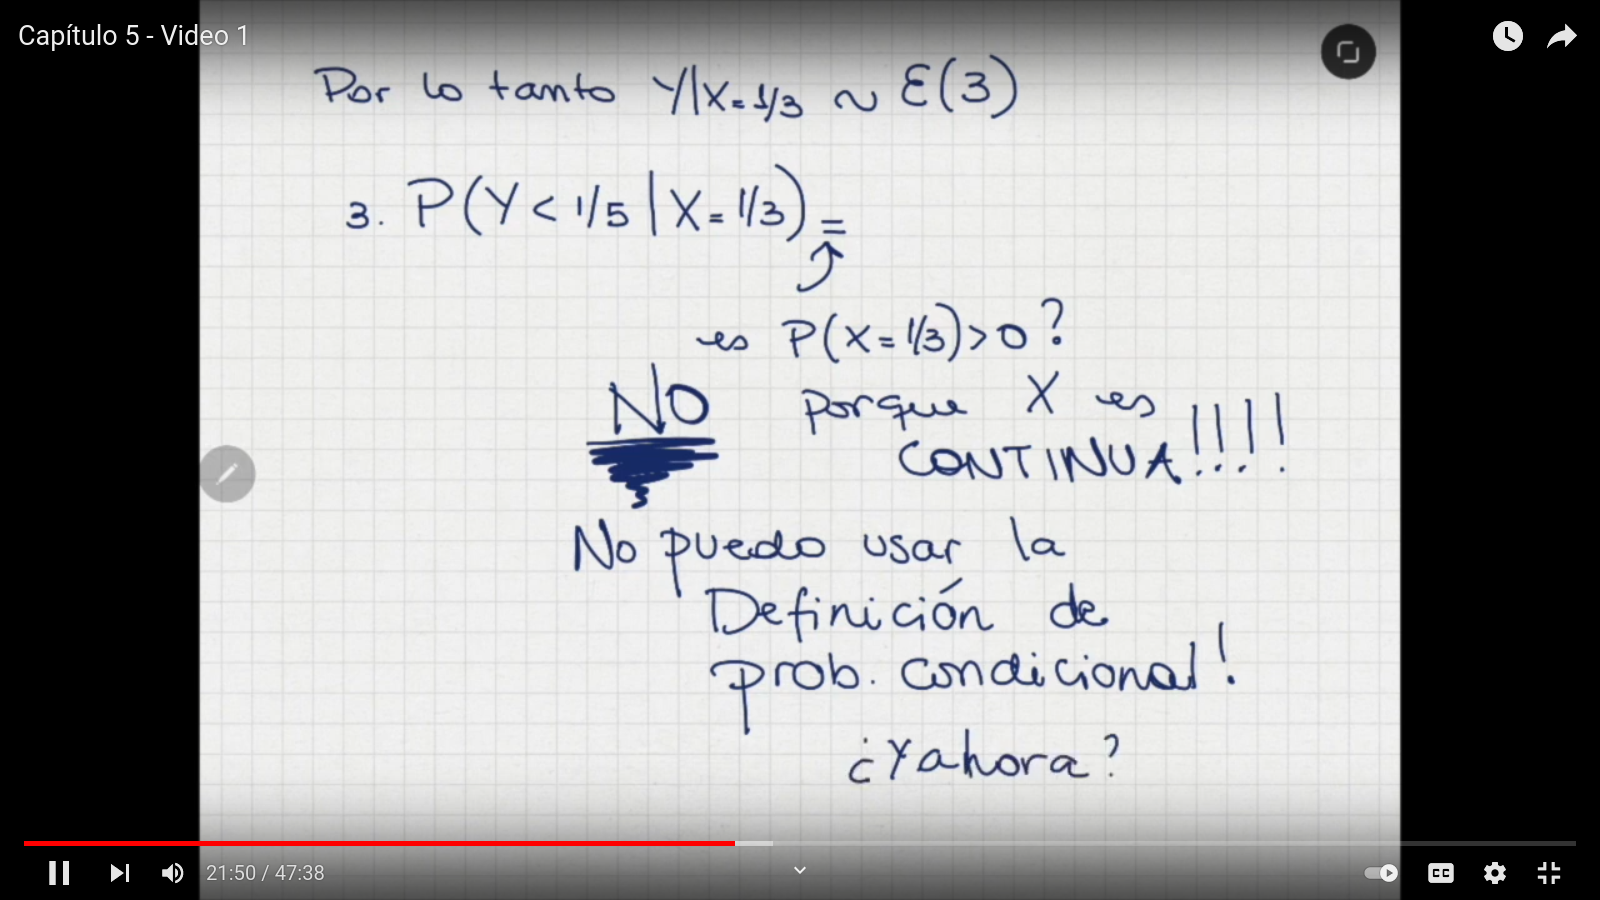 Capítulo 5 - Video 1
Por lo tanto Y|X=1/3 ~ ε(3)
3. P(Y < 1/5 | X = 1/3) =
es P(X = 1/3) > 0?
NO porque X es
CONTINUA!!!!
No puedo usar la
Definición de
prob. condicional!
¿Y ahora?
21:50 / 47:38
CC